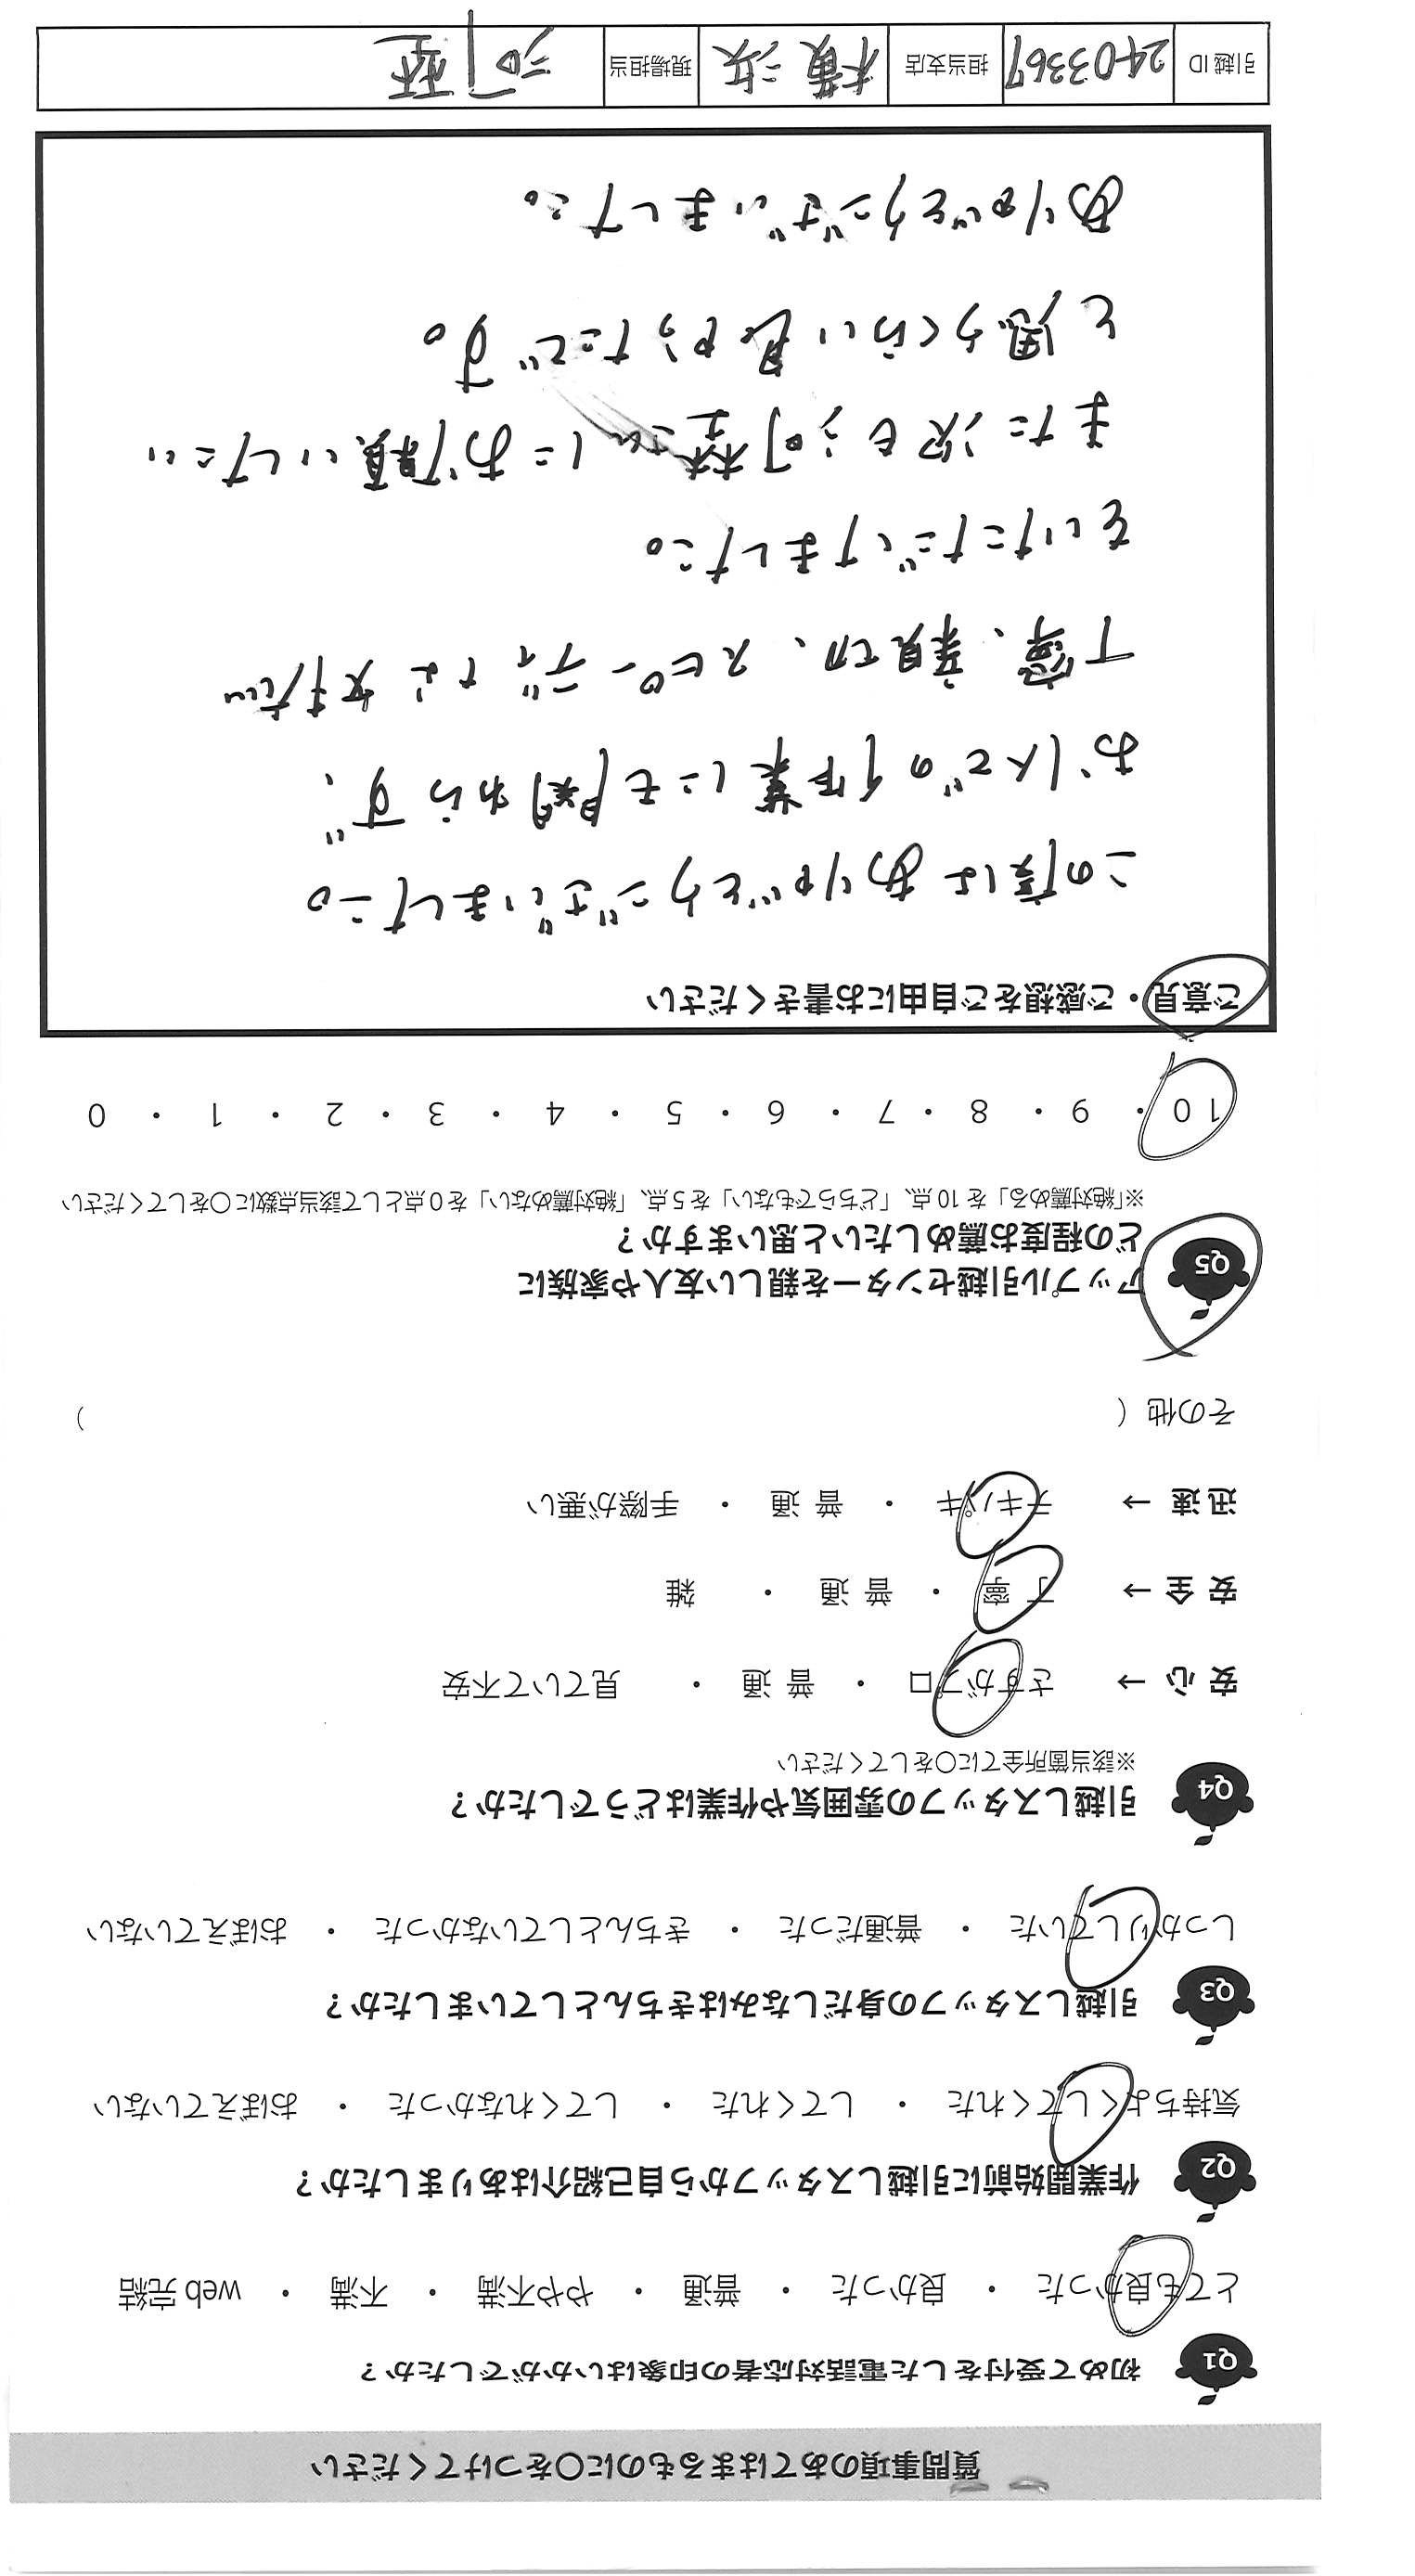 質問事項のあてはまるものに〇をつけてください
Q1 初めて受付をした電話対応者の印象はいかがでしたか？
とても良かった ・ 良かった ・ 普通 ・ やや不満 ・ 不満 ・ web 完結
Q2 作業開始前に引越しスタッフから自己紹介はありましたか？
気持ちよくしてくれた ・ してくれた ・ してくれなかった ・ おぼえていない
Q3 引越しスタッフの身だしなみはきちんとしていましたか？
しっかりしていた ・ 普通だった ・ きちんとしていなかった ・ おぼえていない
Q4 引越しスタッフの雰囲気や作業はどうでしたか？
※該当箇所全てに〇をしてください
安心 → さすがプロ ・ 普通 ・ 見ていて不安
安全 → 丁寧 ・ 普通 ・ 雑
迅速 → テキパキ ・ 普通 ・ 手際が悪い
その他（ ）
Q5 アップル引越センターを親しい友人や家族に
どの程度お薦めしたいと思いますか？
※「絶対薦める」を 10 点、「どちらでもない」を 5 点、「絶対薦めない」を 0 点として該当点数に〇をしてください
10 ・ 9 ・ 8 ・ 7 ・ 6 ・ 5 ・ 4 ・ 3 ・ 2 ・ 1 ・ 0
ご意見・ご感想をご自由にお書きください
この度はありがとうございました。
お1人での作業にも関わらず、
丁寧、親切、スピーディな対応
をいただけました。
また次も にお願いしたい
と思うくらい良かったです。
ありがとうございました。
引越 ID 2403367 担当支店 横浜 現場担当